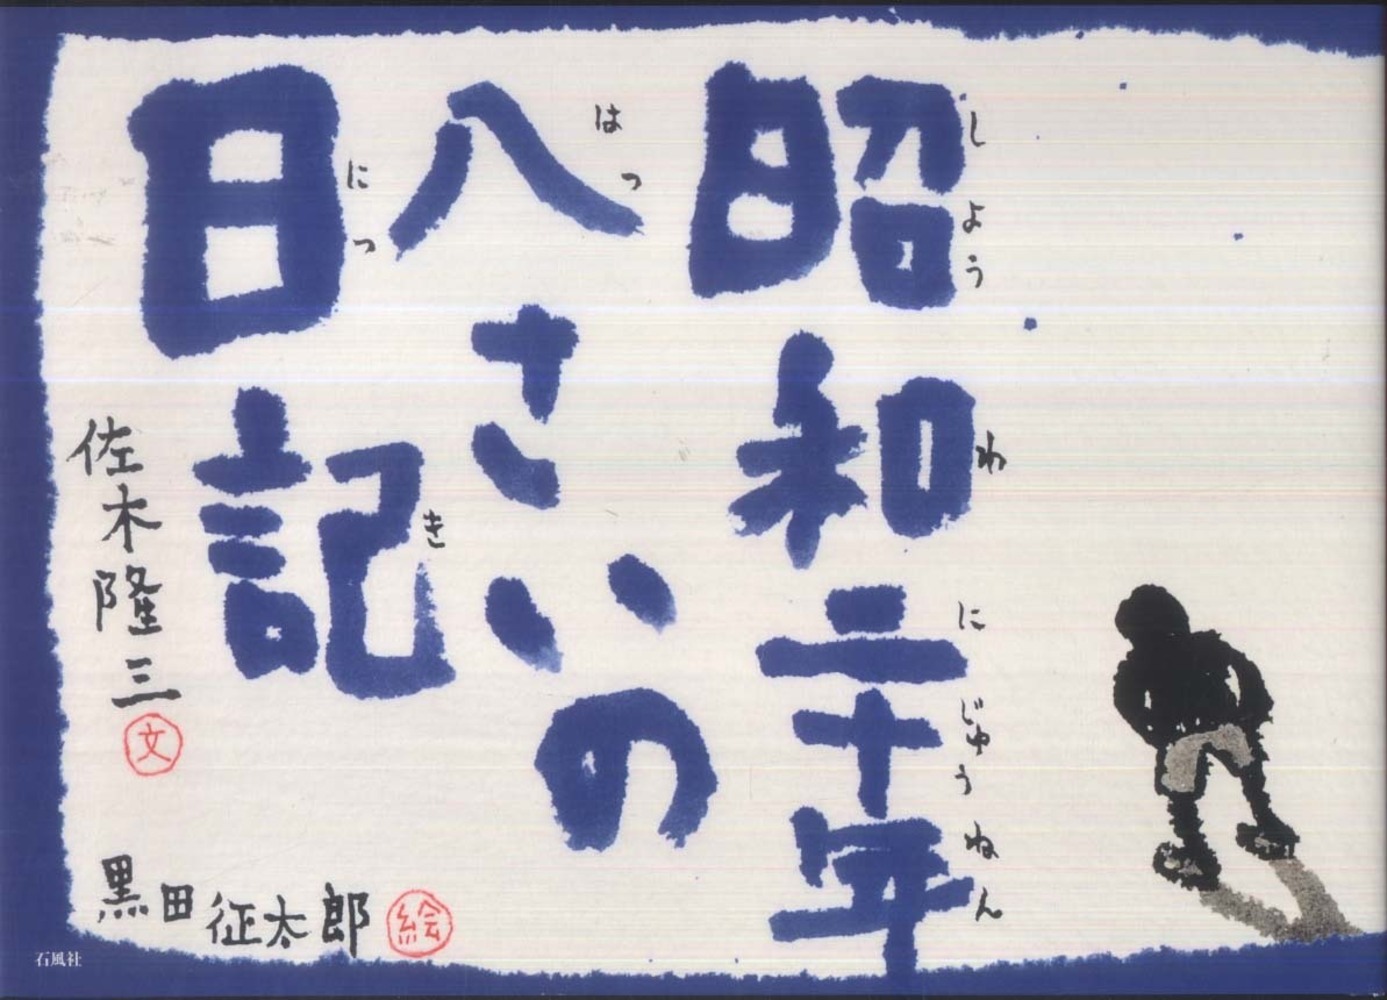 昭和二十年
しょうわにじゅうねん
八さいの
はっ
日記
にっき
佐木隆三 文
黒田征太郎 絵
石風社